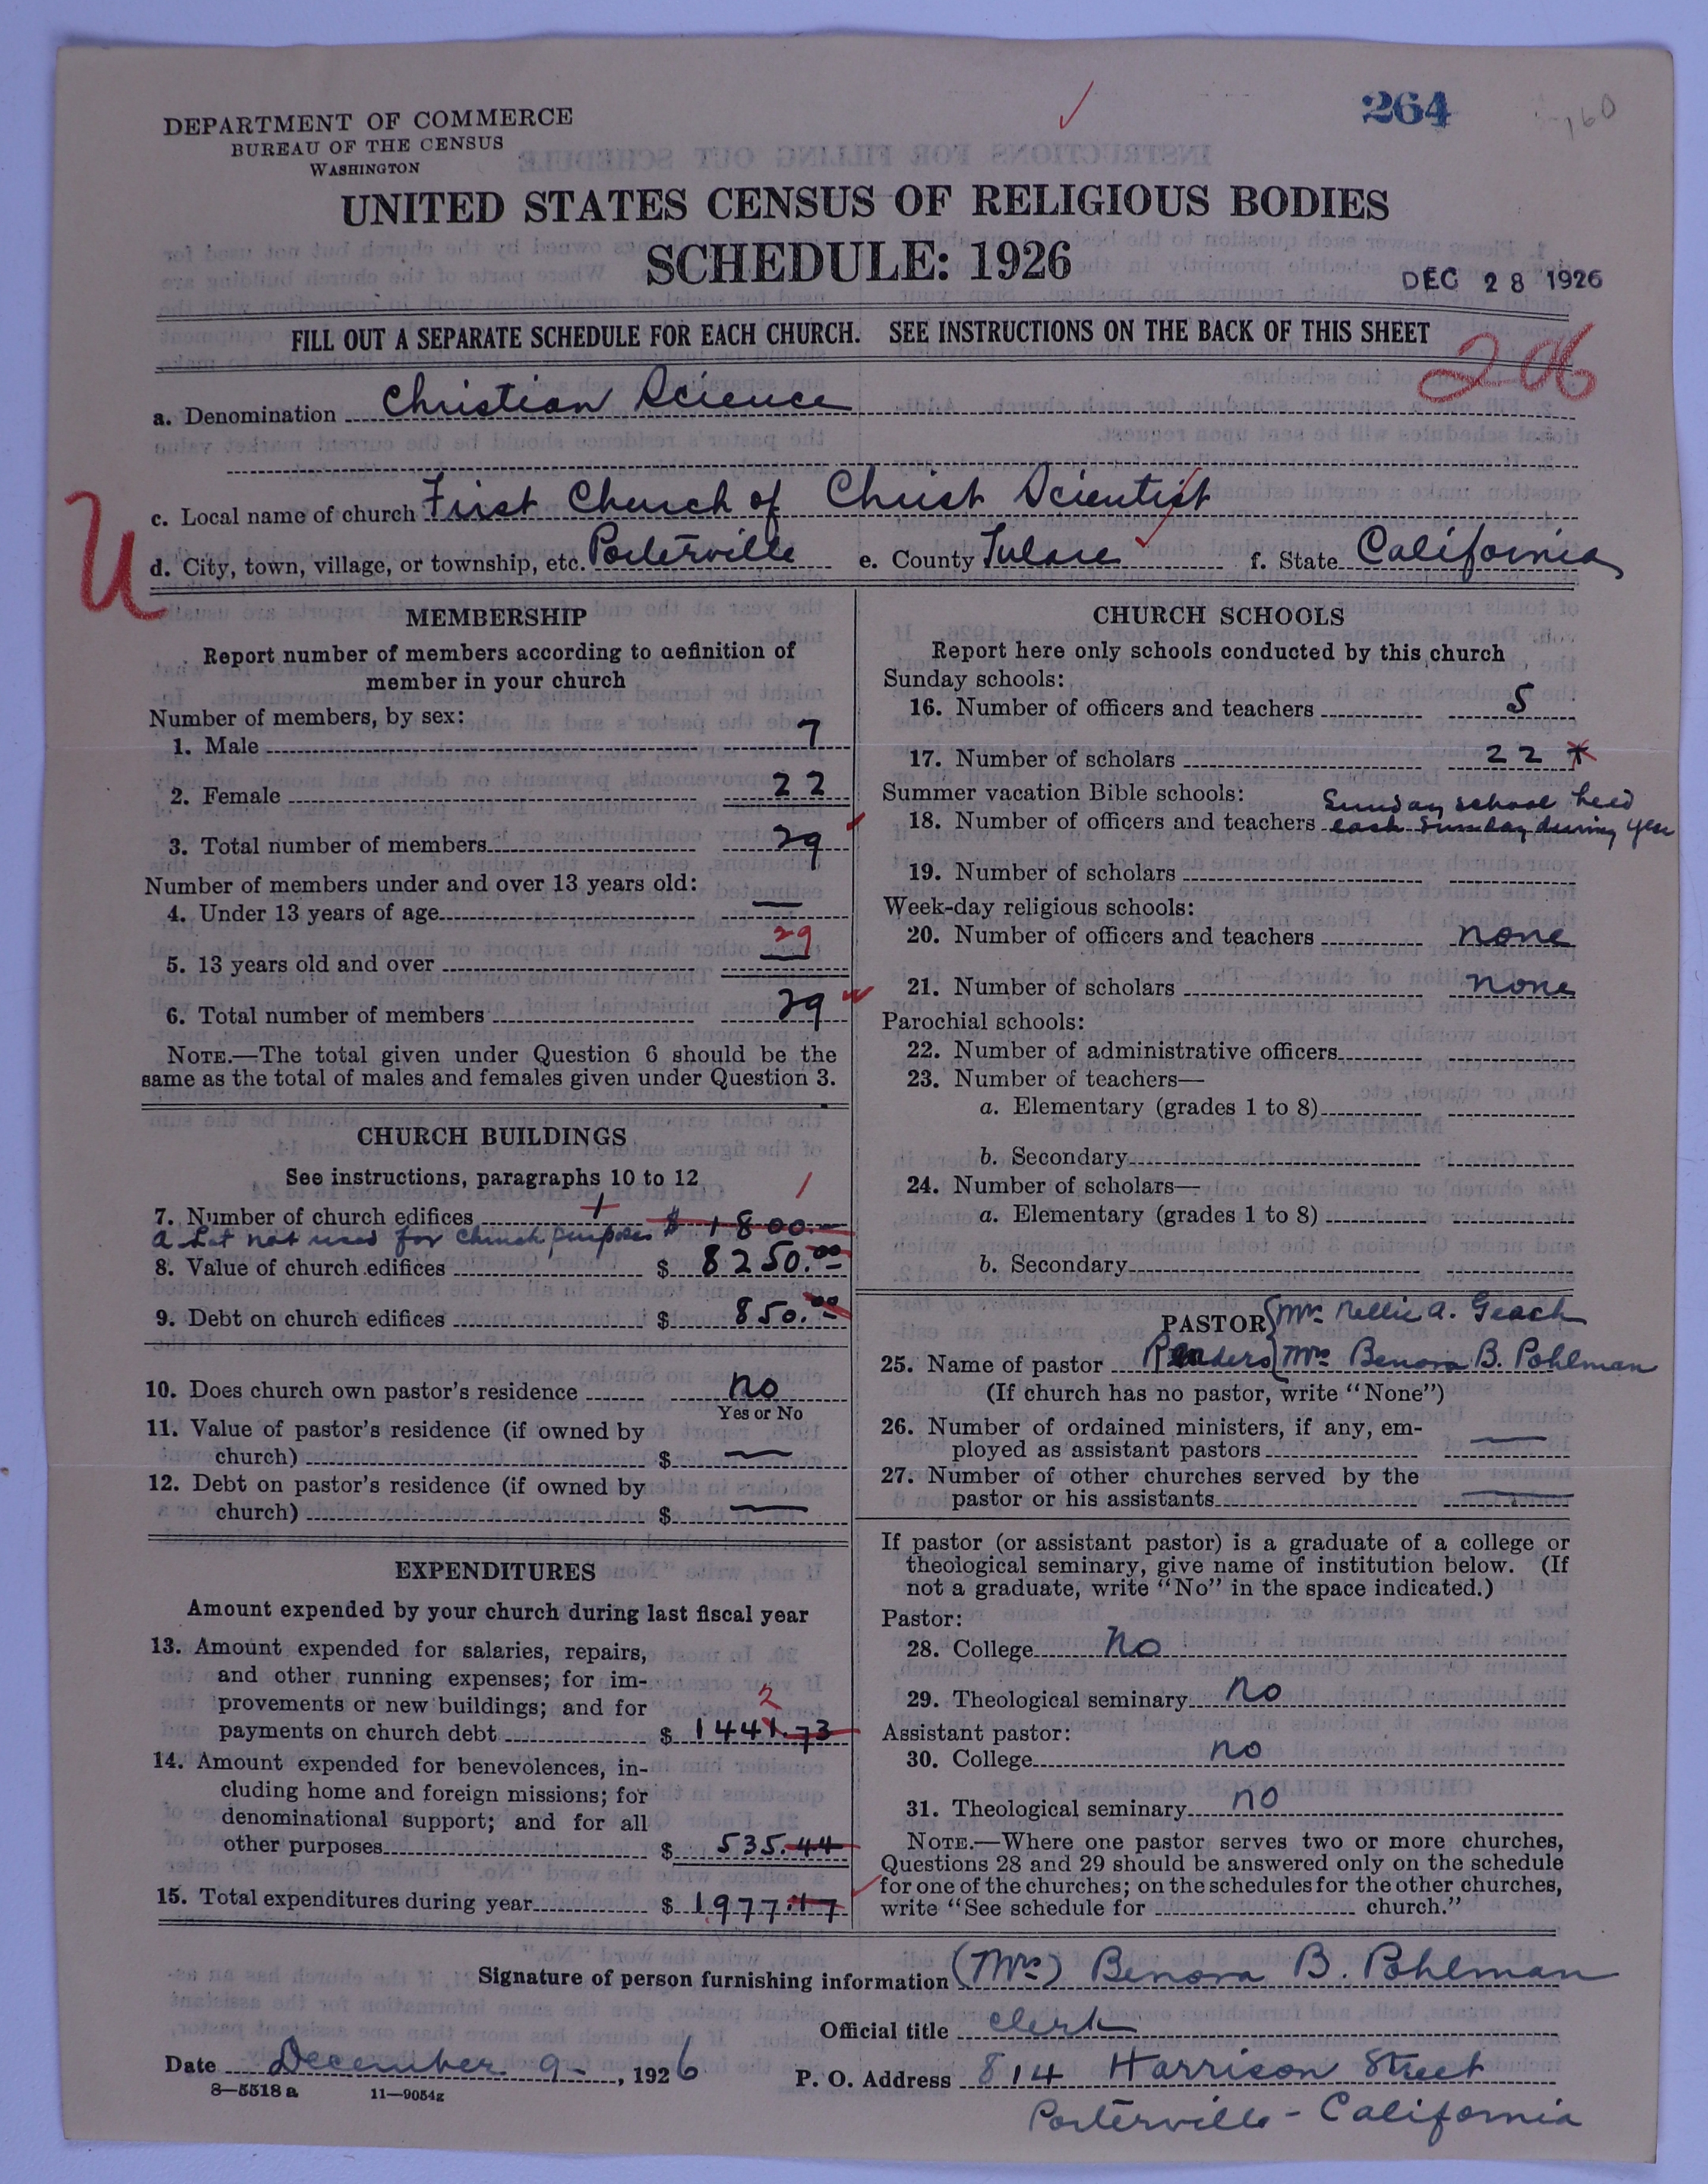 264
160
DEPARTMENT OF COMMERCE
BUREAU OF THE CENSUS
WASHINGTON
UNITED STATES CENSUS OF RELIGIOUS BODIES
SCHEDULE: 1926
DEC 28 1926
FILL OUT A SEPARATE SCHEDULE FOR EACH CHURCH. SEE INSTRUCTIONS ON THE BACK OF THIS SHEET
206
a. Denomination Christian Science
c. Local name of church First Church of Christ Scientist
U
d. City, town, village, or township, etc. Porterville e. County Tulare f. State California
MEMBERSHIP
Report number of members according to definition of
member in your church
Number of members, by sex:
1. Male 7
2. Female 22
3. Total number of members 29
Number of members under and over 13 years old:
4. Under 13 years of age —
29
5. 13 years old and over —
6. Total number of members 29
NOTE.—The total given under Question 6 should be the
same as the total of males and females given under Question 3.
CHURCH BUILDINGS
See instructions, paragraphs 10 to 12
7. Number of church edifices 1 $1800.— 1
a Lot not used for church purposes
8. Value of church edifices $ 8250.00
9. Debt on church edifices $ 850.00
10. Does church own pastor's residence no
Yes or No
11. Value of pastor's residence (if owned by
church) $ —
12. Debt on pastor's residence (if owned by
church) $ —
EXPENDITURES
Amount expended by your church during last fiscal year
13. Amount expended for salaries, repairs,
and other running expenses; for im-
provements or new buildings; and for
2
payments on church debt $ 1441.73
14. Amount expended for benevolences, in-
cluding home and foreign missions; for
denominational support; and for all
other purposes $ 535.44
15. Total expenditures during year $ 1977.17
CHURCH SCHOOLS
Report here only schools conducted by this church
Sunday schools:
16. Number of officers and teachers 5
17. Number of scholars 22 *
Summer vacation Bible schools: Sunday school held
18. Number of officers and teachers each Sunday during year
19. Number of scholars
Week-day religious schools:
20. Number of officers and teachers none
21. Number of scholars none
Parochial schools:
22. Number of administrative officers
23. Number of teachers—
a. Elementary (grades 1 to 8)
b. Secondary
24. Number of scholars—
a. Elementary (grades 1 to 8)
b. Secondary
PASTOR { Mrs Nellie A. Geach
25. Name of pastor Readers { Mrs Benora B. Pohlman
(If church has no pastor, write "None")
26. Number of ordained ministers, if any, em-
ployed as assistant pastors —
27. Number of other churches served by the
pastor or his assistants —
If pastor (or assistant pastor) is a graduate of a college or
theological seminary, give name of institution below. (If
not a graduate, write "No" in the space indicated.)
Pastor:
28. College No
29. Theological seminary no
Assistant pastor:
30. College no
31. Theological seminary no
NOTE.—Where one pastor serves two or more churches,
Questions 28 and 29 should be answered only on the schedule
for one of the churches; on the schedules for the other churches,
write "See schedule for church."
Signature of person furnishing information (Mrs) Benora B. Pohlman
Official title clerk
Date December 9-, 1926 P. O. Address 814 Harrison Street
8—5518 a 11—9054g
Porterville - California